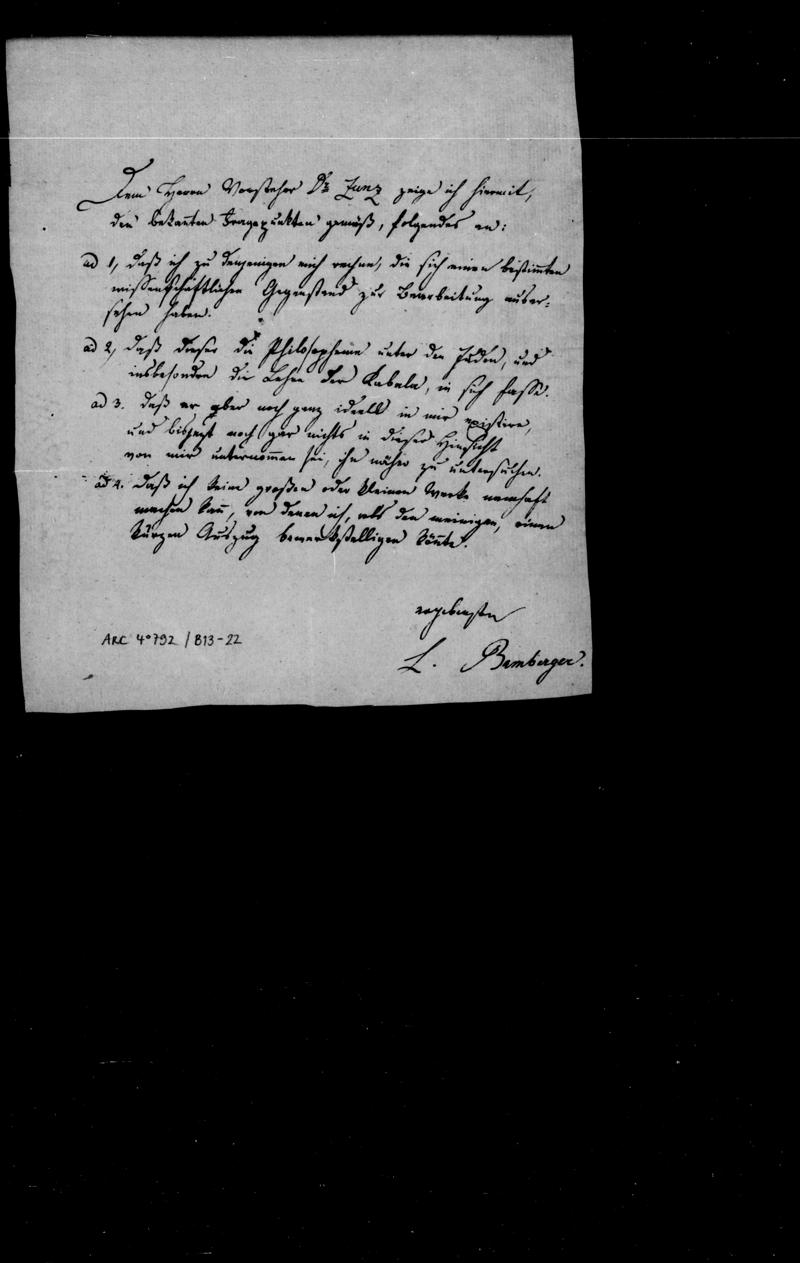 Dem Herrn Vorsteher Dr Zunz zeige ich hiermit,
den bekanten Fragepunkten gemäß, folgendes an:
ad 1, daß ich zu denjenigen mich rechne, die sich einen bestimten
wissenschaftlichen Gegenstand zur Bearbeitung auser-
sehen haben.
ad 2, daß dieser die Philosopheme unter den Juden, und
insbesondre die Lehre der Kabala, in sich fasse.
ad 3. daß er aber noch ganz ideell in mir existire,
und bisjetzt noch gar nichts in dieser Hinsicht
von mir unternommen sei, ihn näher zu untersuchen.
ad 4. daß ich keine großen oder kleinen Werke namhaft
machen kan, von denen ich, als den meinigen, einen
kurzen Auszug bewerkstelligen könte.
ergebenster
L. Bamberger.
ARC 4°792 / B13-22